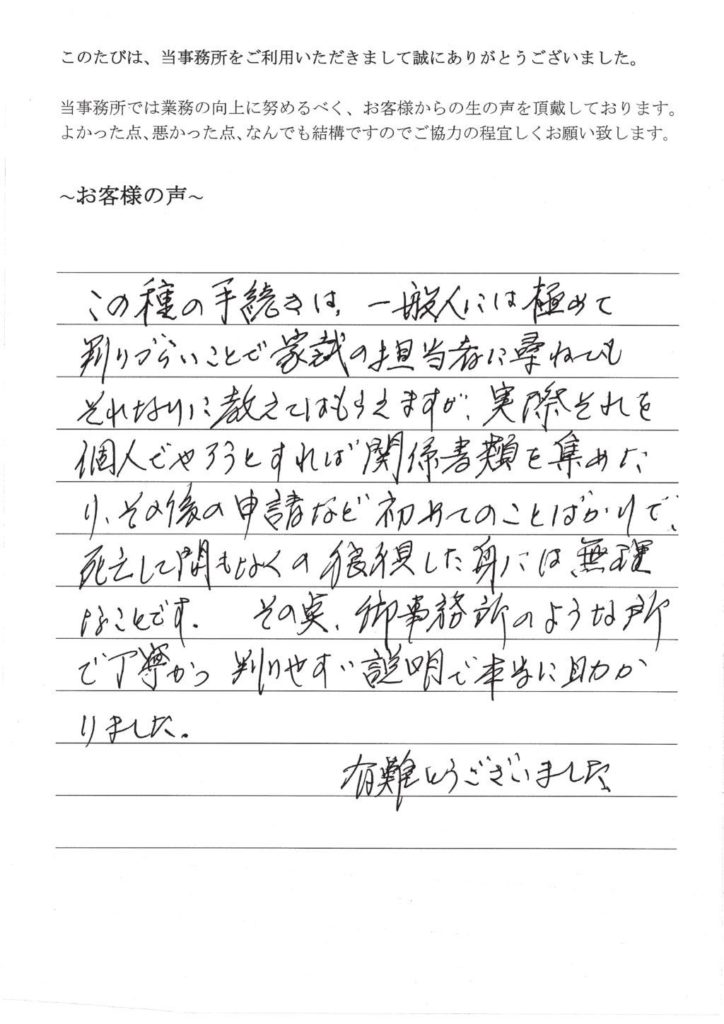 このたびは、当事務所をご利用いただきまして誠にありがとうございました。
当事務所では業務の向上に努めるべく、お客様からの生の声を頂戴しております。
よかった点、悪かった点、なんでも結構ですのでご協力の程宜しくお願い致します。
~お客様の声~
この種の手続きは、一般人には極めて
判りづらいことで家裁の担当者に尋ねても
それなりに教えてはもらえますが、実際それを
個人でやろうとすれば関係書類を集めた
り、その後の申請など初めてのことばかりで、
死亡して間もなくの狼狽した身には無理
なことです。 その点、御事務所のような所
で丁寧かつ判りやすい説明で本当に助か
りました。
有難とうございました